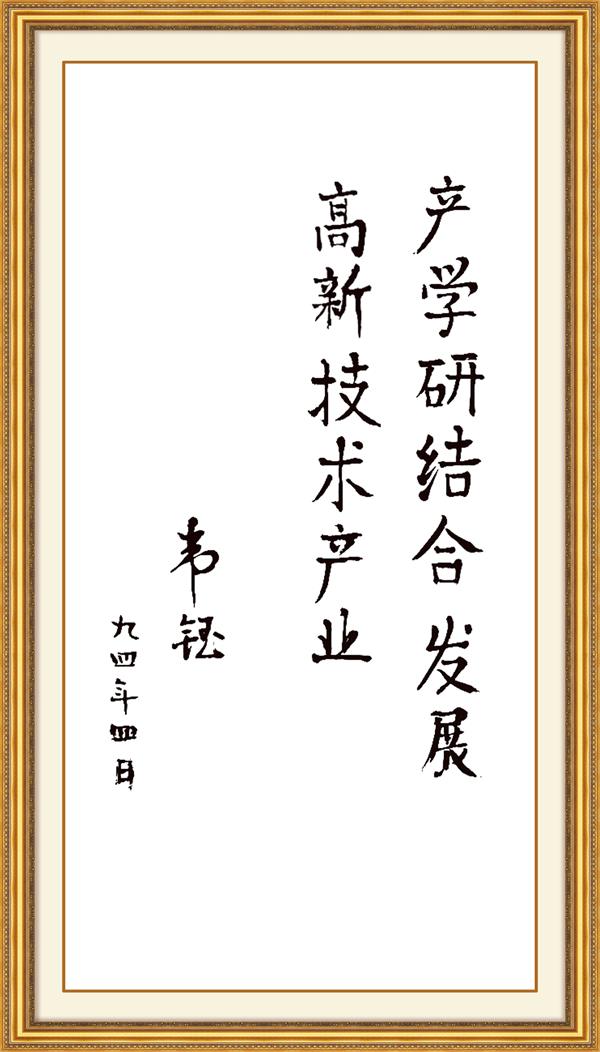 产学研结合 发展
高新技术产业
韦钰
九四年四月